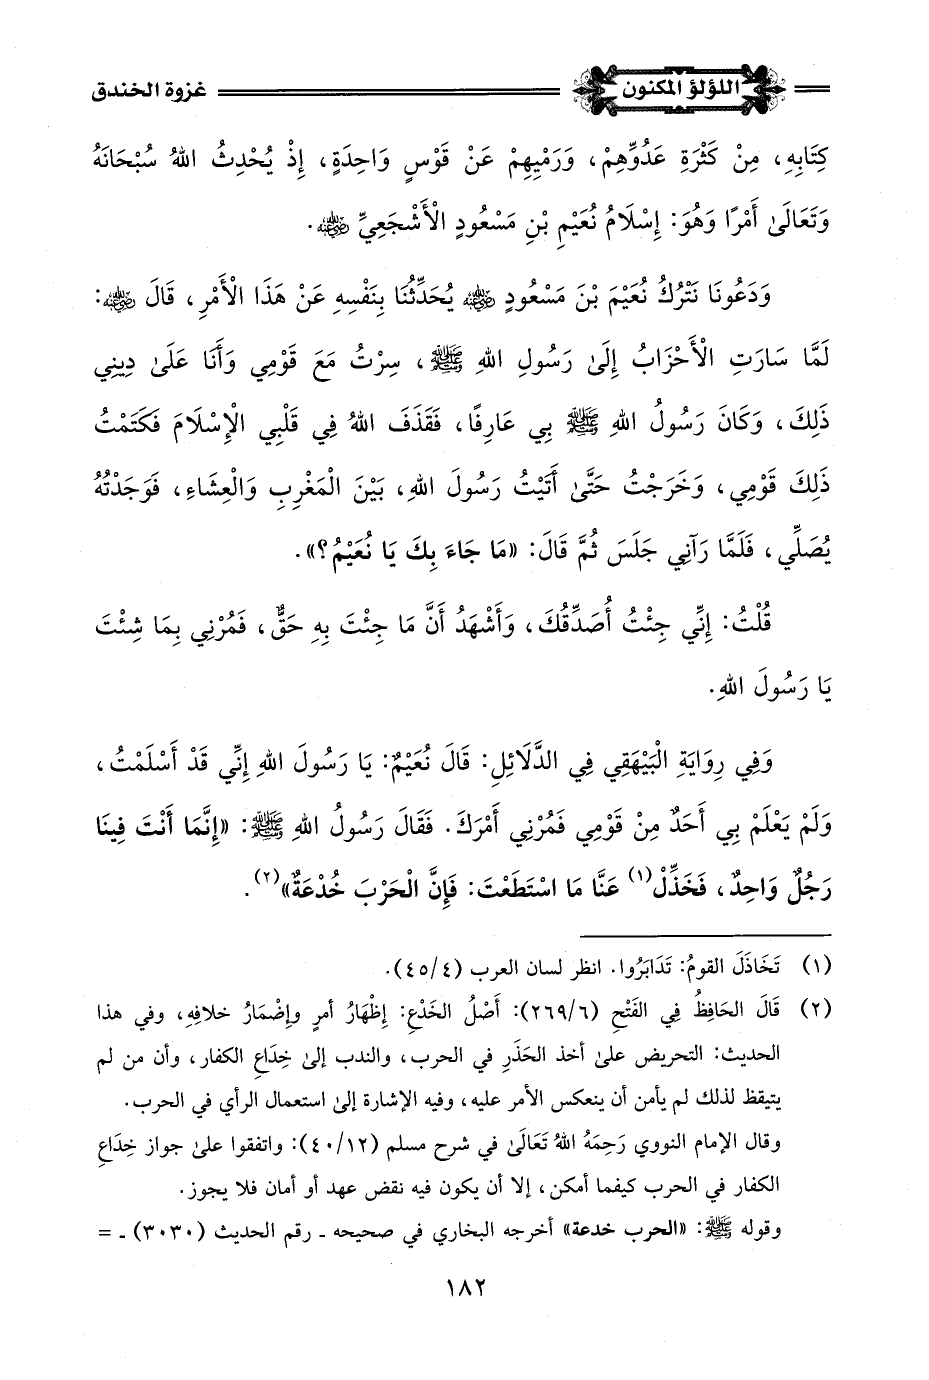 اللؤلؤ المكنون
غزوة الخندق
كِتَابِهِ، مِنْ كَثْرَةِ عَدُوِّهِمْ، وَرَمْيِهِمْ عَنْ قَوْسٍ وَاحِدَةٍ، إِذْ يُحْدِثُ اللهُ سُبْحَانَهُ
وَتَعَالَىٰ أَمْرًا وَهُوَ: إِسْلَامُ نُعَيْمِ بْنِ مَسْعُودٍ الْأَشْجَعِيِّ رضي الله عنه.
وَدَعُونَا نَتْرُكُ نُعَيْمَ بْنَ مَسْعُودٍ رضي الله عنه يُحَدِّثُنَا بِنَفْسِهِ عَنْ هَذَا الْأَمْرِ، قَالَ رضي الله عنه:
لَمَّا سَارَتِ الْأَحْزَابُ إِلَىٰ رَسُولِ اللهِ ﷺ، سِرْتُ مَعَ قَوْمِي وَأَنَا عَلَىٰ دِينِي
ذَلِكَ، وَكَانَ رَسُولُ اللهِ ﷺ بِي عَارِفًا، فَقَذَفَ اللهُ فِي قَلْبِي الْإِسْلَامَ فَكَتَمْتُ
ذَلِكَ قَوْمِي، وَخَرَجْتُ حَتَّىٰ أَتَيْتُ رَسُولَ اللهِ، بَيْنَ الْمَغْرِبِ وَالْعِشَاءِ، فَوَجَدْتُهُ
يُصَلِّي، فَلَمَّا رَآنِي جَلَسَ ثُمَّ قَالَ: «مَا جَاءَ بِكَ يَا نُعَيْمُ؟».
قُلْتُ: إِنِّي جِئْتُ أُصَدِّقُكَ، وَأَشْهَدُ أَنَّ مَا جِئْتَ بِهِ حَقٌّ، فَمُرْنِي بِمَا شِئْتَ
يَا رَسُولَ اللهِ.
وَفِي رِوَايَةِ الْبَيْهَقِي فِي الدَّلَائِلِ: قَالَ نُعَيْمٌ: يَا رَسُولَ اللهِ إِنِّي قَدْ أَسْلَمْتُ،
وَلَمْ يَعْلَمْ بِي أَحَدٌ مِنْ قَوْمِي فَمُرْنِي أَمْرَكَ. فَقَالَ رَسُولُ اللهِ ﷺ: «إِنَّمَا أَنْتَ فِينَا
رَجُلٌ وَاحِدٌ، فَخَذِّلْ(١) عَنَّا مَا اسْتَطَعْتَ: فَإِنَّ الْحَرْبَ خُدْعَةٌ»(٢).
(١) تَخَاذَلَ القومُ: تَدَابَرُوا. انظر لسان العرب (٤/٤٥).
(٢) قَالَ الحَافِظُ فِي الفَتْحِ (٦/٢٦٩): أَصْلُ الخَدْعِ: إِظْهَارُ أمرٍ وإضْمَارُ خلافِهِ، وفي هذا
الحديث: التحريض علىٰ أخذ الحَذَرِ في الحرب، والندب إلىٰ خِدَاعِ الكفار، وأن من لم
يتيقظ لذلك لم يأمن أن ينعكس الأمر عليه، وفيه الإشارة إلىٰ استعمال الرأي في الحرب.
وقال الإمام النووي رَحِمَهُ اللهُ تَعَالَىٰ في شرح مسلم (١٢/٤٠): واتفقوا علىٰ جواز خِدَاعِ
الكفار في الحرب كيفما أمكن، إلا أن يكون فيه نقض عهد أو أمان فلا يجوز.
وقوله ﷺ: «الحرب خدعة» أخرجه البخاري في صحيحه ـ رقم الحديث (٣٠٣٠) ـ =
١٨٢